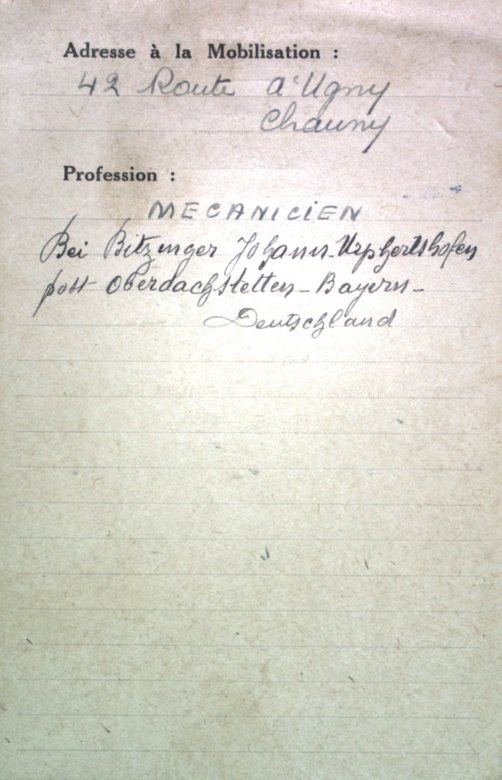 Adresse à la Mobilisation :
42 Route d'Ugny
Chauny
Profession :
MECANICIEN
Bei Bitzinger Johann-Urphertshofen
post Oberdachstetten - Bayern -
Deutschland